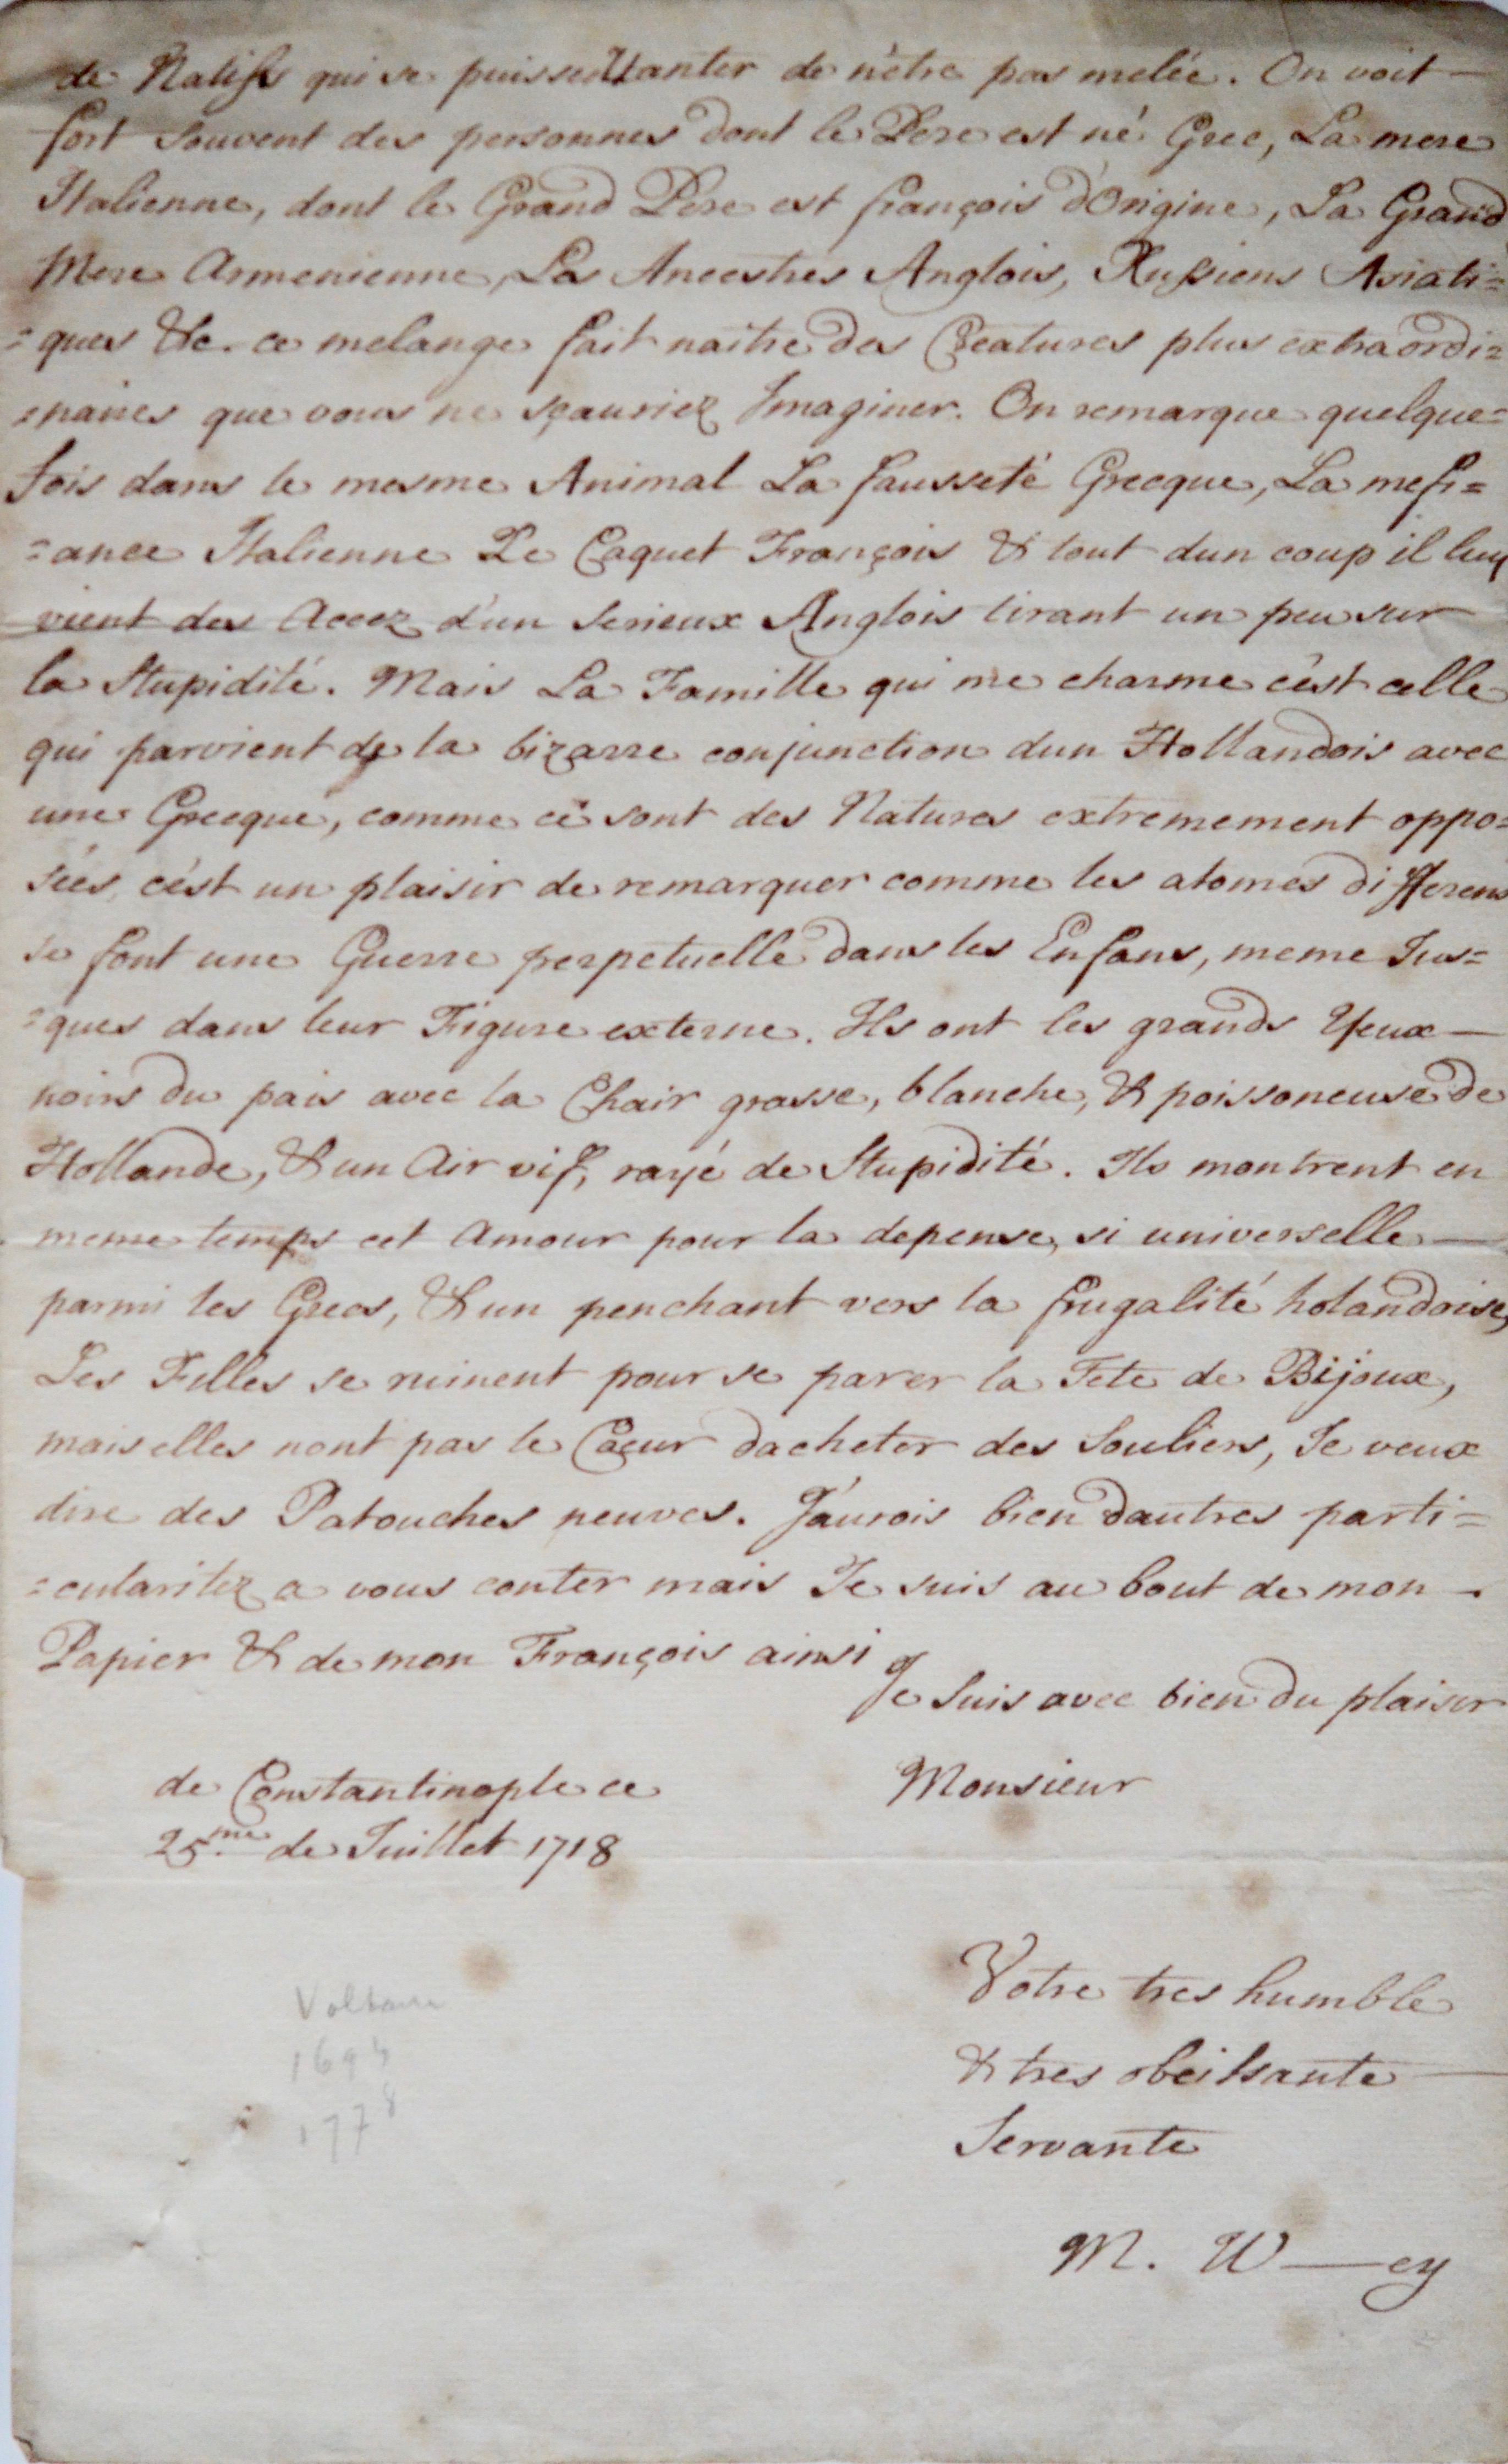 de Natifs qui se puissent vanter de n'etre pas melée. On voit —
fort souvent des personnes dont le Pere est né Grec, La mere
Italienne, dont le Grand Pere est françois d'Origine, La Grand
Mere Armenienne, Les Ancestres Anglois, Russiens Asiati=
=ques &c. ce melange fait naitre des Creatures plus extraordi=
=naires que vous ne sçauriez Imaginer. On remarque quelque=
fois dans le mesme Animal La fausseté Grecque, La mefi=
=ance Italienne Le Caquet François & tout dun coup il leur
vient des Accez d'un serieux Anglois tirant un peu sur
la Stupidité. Mais La Famille qui me charme c'est celle
qui parvient de la bizarre conjunction dun Hollandois avec
une Grecque, comme ce sont des Natures extremement oppo=
sées, c'est un plaisir de remarquer comme les atomes differens
se font une Guerre perpetuelle dans les Enfans, meme Jus=
=ques dans leur Figure externe. Ils ont les grands Yeux —
noirs du pais avec la Chair grasse, blanche, & poissoneuse de
Hollande, & un Air vif, rayé de Stupidité. Ils montrent en
meme temps cet Amour pour la depense, si universelle —
parmi les Grecs, & un penchant vers la frugalité holandoise,
Les Filles se ruinent pour se parer la Tete de Bijoux,
mais elles nont pas le Cœur dacheter des Souliers, Je veux
dire des Patouches neuves. J'aurois bien dautres parti=
=cularitez a vous conter mais Je suis au bout de mon —
Papier & de mon François ainsi
Je suis avec bien du plaisir
de Constantinople ce
Monsieur
25.me de Juillet 1718
Votre tres humble
& tres obeissante —
Servante
M. W—ey
Voltaire
1694
1778